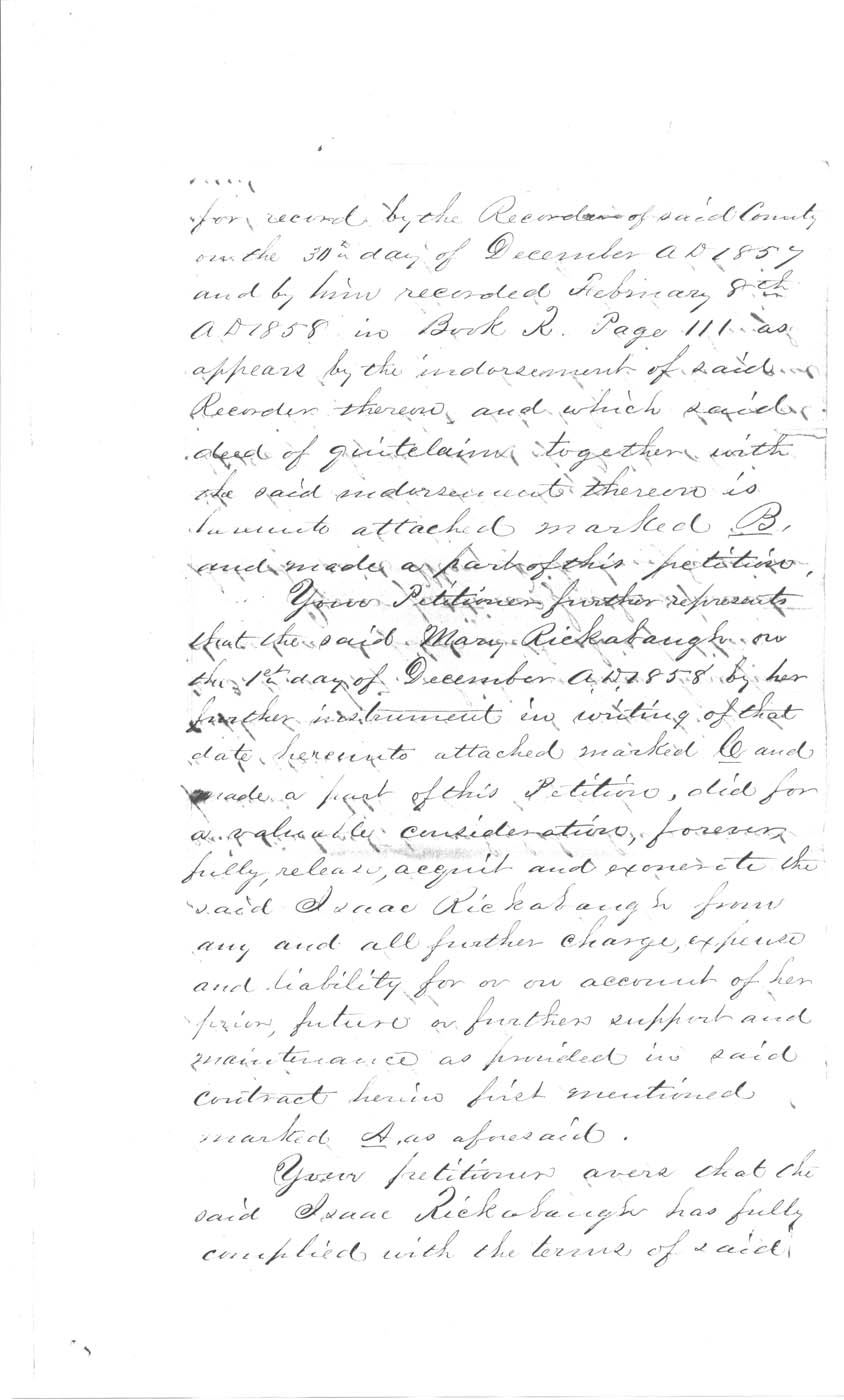 for record by the Recorder of said County
on the 30th day of December A D 1857
and by him recorded February 8th
A D 1858 in Book R. Page 111 as
appears by the indorsement of said
Recorder thereon, and which said
deed of quitclaim together with
the said indorsement thereon is
hereunto attached marked B,
and made a part of this petition,
Your Petitioner further represents
that the said Mary Rickabaugh on
the 1st day of December A,D, 1858 by her
further instrument in writing of that
date hereunto attached marked C and
made a part of this Petition, did for
a valuable consideration, forever
fully, release, acquit and exonerate the
said Isaac Rickabaugh from
any and all further charge, expense
and liability for or on account of her
prior, future or further support and
maintenance as provided in said
contract herein first mentioned
marked A, as aforesaid.
Your petitioner avers that the
said Isaac Rickabaugh has fully
complied with the terms of said